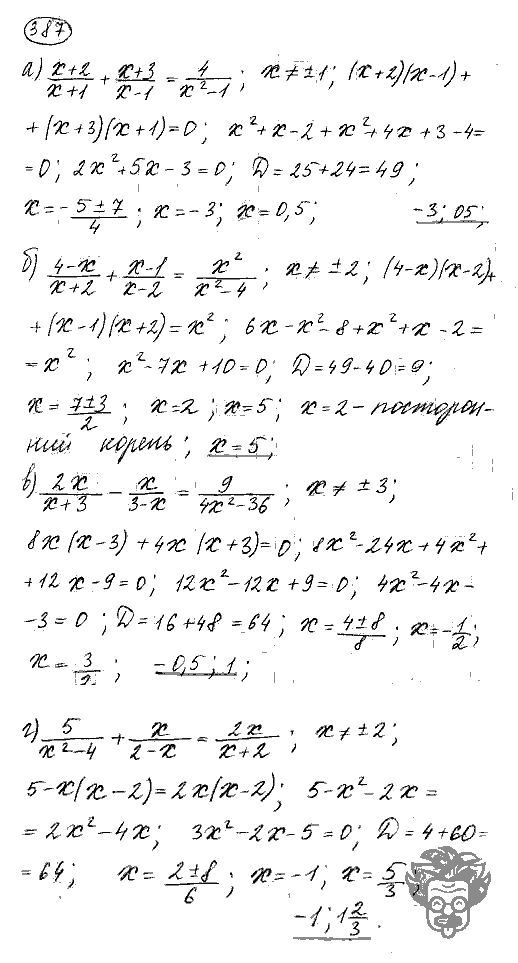 387
а) (x+2)/(x+1) + (x+3)/(x-1) = 4/(x²-1); x ≠ ±1; (x+2)(x-1)+
+(x+3)(x+1)=0; x²+x-2+x²+4x+3-4=
=0; 2x²+5x-3=0; D=25+24=49;
x=-(5±7)/4; x=-3; x=0,5; -3; 05;
б) (4-x)/(x+2) + (x-1)/(x-2) = x²/(x²-4); x ≠ ±2; (4-x)(x-2)+
+(x-1)(x+2)=x²; 6x-x²-8+x²+x-2=
=x²; x²-7x+10=0; D=49-40=9;
x=(7±3)/2; x=2; x=5; x=2-посторон-
ний корень; x=5;
в) 2x/(x+3) - x/(3-x) = 9/(4x²-36); x ≠ ±3;
8x(x-3)+4x(x+3)=0; 8x²-24x+4x²+
+12x-9=0; 12x²-12x+9=0; 4x²-4x-
-3=0; D=16+48=64; x=(4±8)/8; x=-1/2;
x=3/2; -0,5; 1;
г) 5/(x²-4) + x/(2-x) = 2x/(x+2); x ≠ ±2;
5-x(x-2)=2x(x-2); 5-x²-2x=
=2x²-4x; 3x²-2x-5=0; D=4+60=
=64; x=(2±8)/6; x=-1; x=5/3;
-1; 1 2/3.